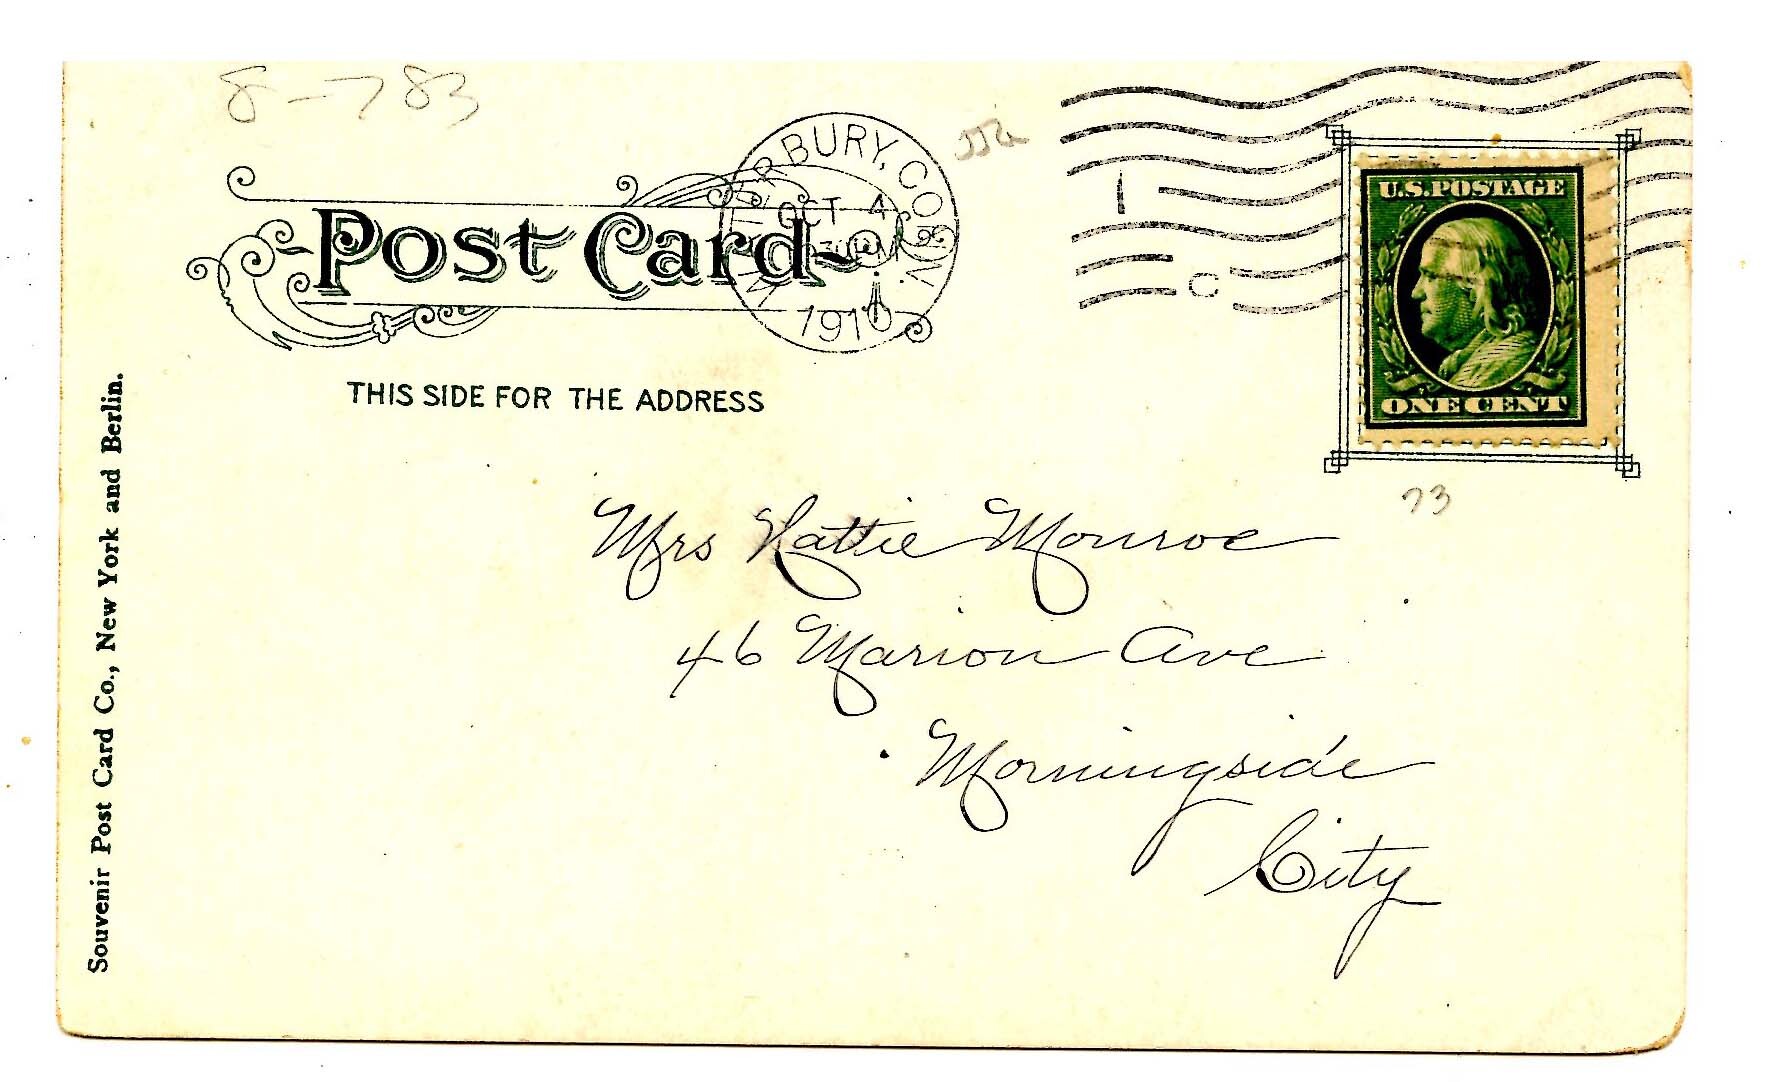 8-783
WATERBURY, CONN.
OCT 4
1910
Post Card
THIS SIDE FOR THE ADDRESS
1
C
U.S. POSTAGE
ONE CENT
73
Mrs Hattie Monroe
46 Marion Ave
Morningside
City
Souvenir Post Card Co., New York and Berlin.